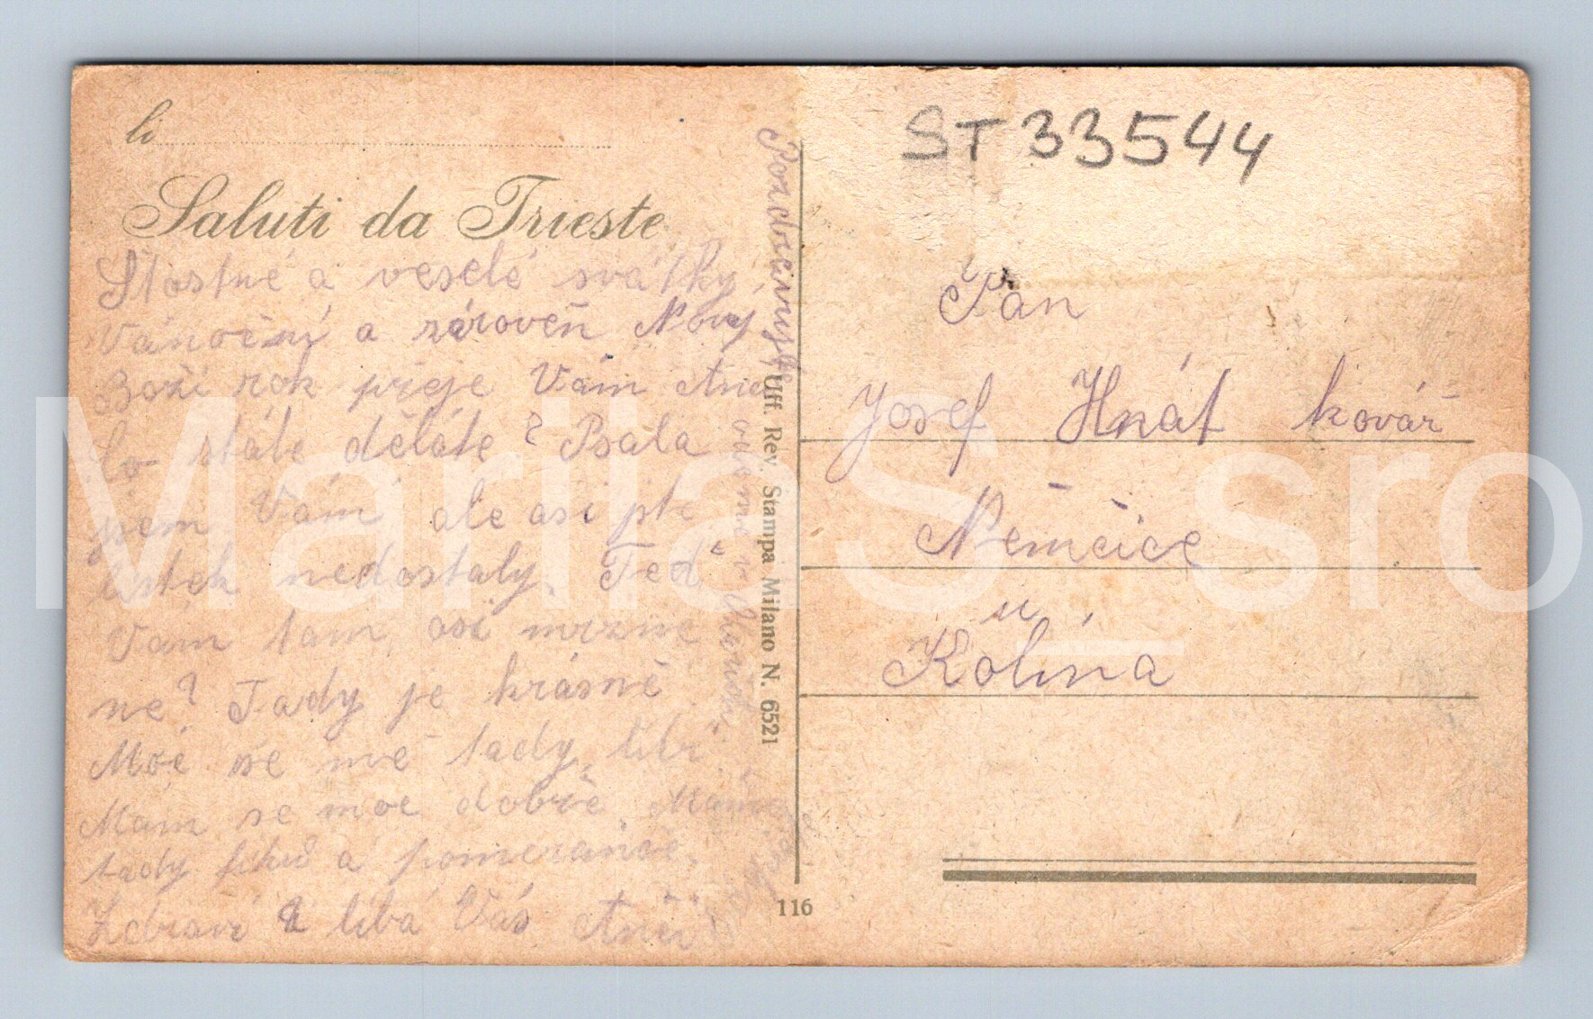 li
Saluti da Trieste
Štastné a veselé svátky
Vánoční a zároveň Nový
Boží rok přeje Vám Anči
Co stále děláte? Psala
jsem Vám ale asi ste
lístek nedostaly. Teď
Vám tam asi mrzne
ne? Tady je krásně
Moc se mě tady líbí
Mám se moc dobře. Máme
tady fíků a pomeranče.
Zdraví a líbá Vás Anči
Pozdravujte
Uff. Rev. Stampa Milano N. 6521
116
ST 33544
Pan
Josef Hnát kovář
Němčice
u
Kolína
MarijaS_sro